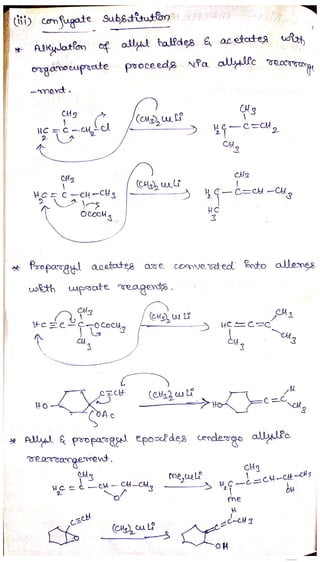 (iii) conjugate substitution
* Alkylation of allyl halides & acetates with
organocuprate proceeds via allylic rearrange
-ment.
CH3
H2C = C - CH2 - Cl
(CH3)2 CuLi
CH3
H2C - C = CH2
CH3
CH3
H2C = C - CH - CH3
OCOCH3
(CH3)2 CuLi
CH3
H2C - C = CH - CH3
H3C
* Propargyl acetates are converted into allenes
with uprate reagents.
HC ≡ C - C - OCOCH3
CH3
CH3
(CH3)2 CuLi
HC = C = C
CH3
CH3
CH3
HO
C≡CH
OAc
(CH3)2 CuLi
HO
= C = C
H
CH3
* Allyl & propargyl epoxides undergo allylic
rearrangement.
CH3
H2C = C - CH - CH - CH3
O
Me2CuLi
CH3
H2C - C = CH - CH - CH3
Me
OH
C≡CH
O
(CH3)2 CuLi
H
C = C - CH3
OH